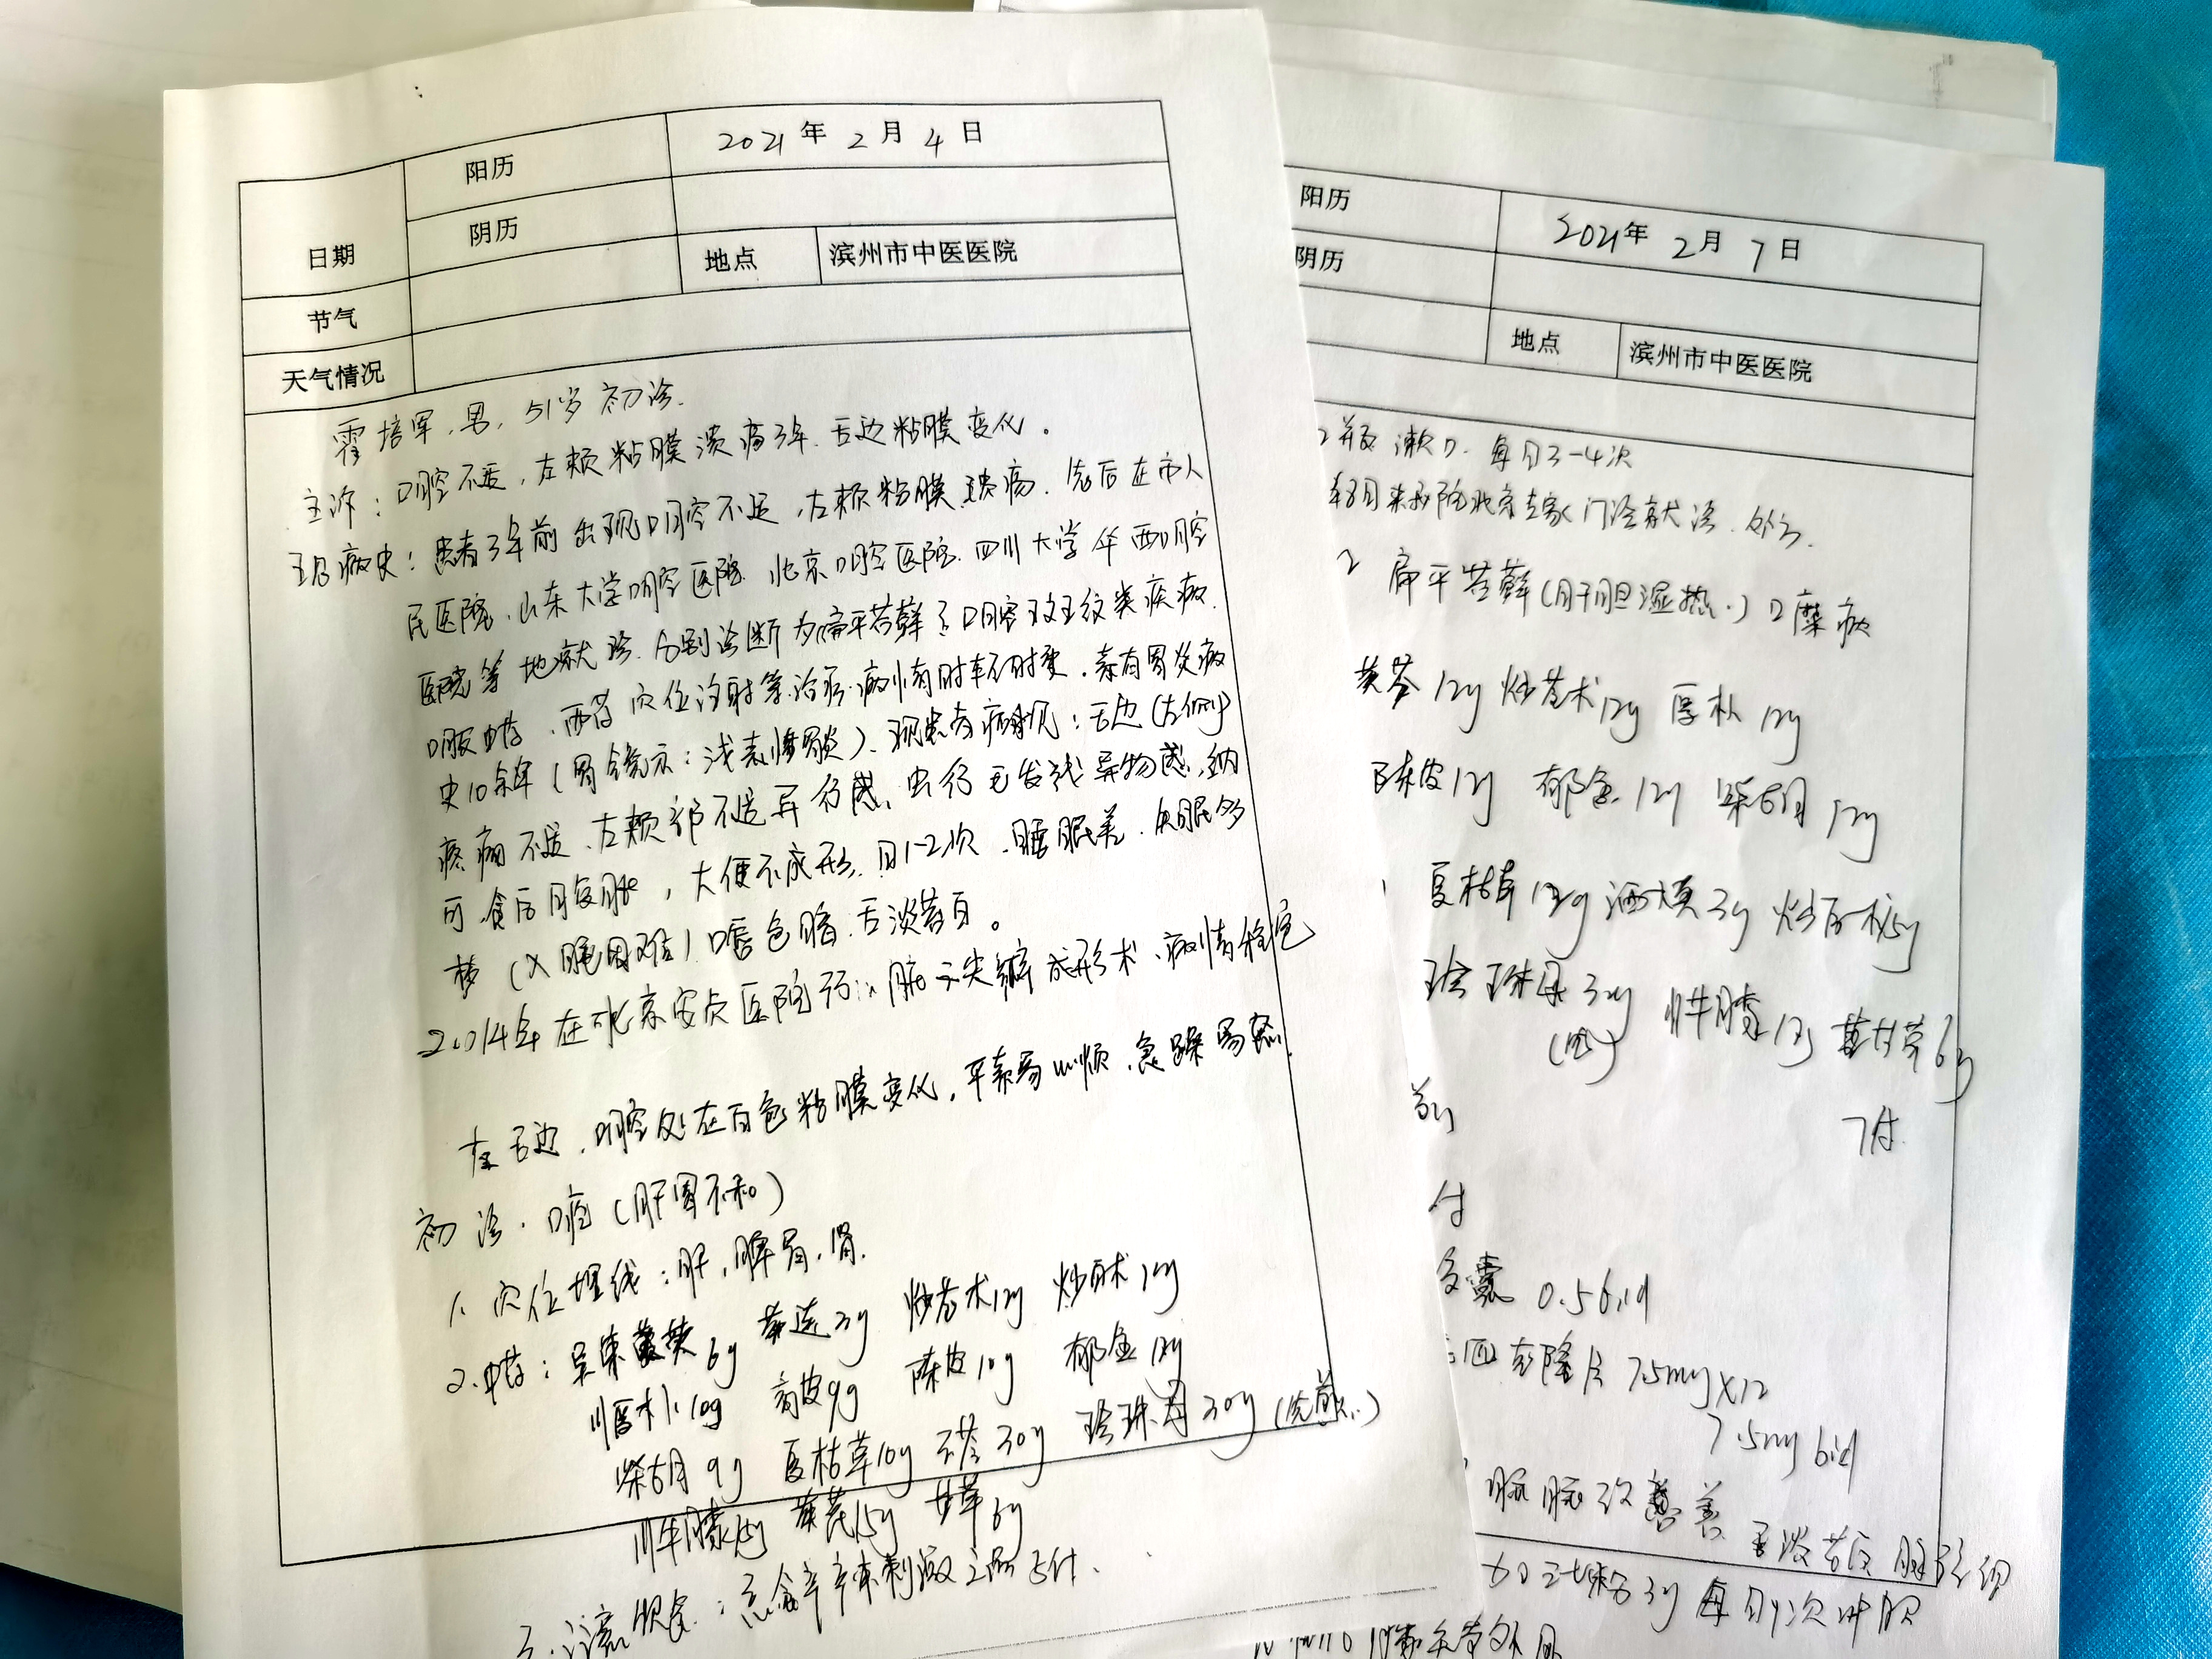 阳历 2021年2月4日
日期 阴历
地点 滨州市中医医院
节气
天气情况
霍培军,男,51岁 初诊.
主诉:口腔不适,左颊粘膜溃疡3年.舌边粘膜变化。
现病史:患者3年前出现口腔不适,左颊粘膜溃疡.先后在市人
民医院、山东大学口腔医院.北京口腔医院.四川大学华西口腔
医院等地就诊.分别诊断为扁平苔藓 口腔 纹类疾病.
口服中药、西药 穴位注射等治疗.病情时轻时重.素有胃炎病
史10余年(胃镜示:浅表性胃炎)、现患者 :舌边(左侧)
疼痛不适、左颊部不适异 感、 毛发状异物感,纳
可.食后腹胀,大便不成形.日1-2次.睡眠差.多
梦(入睡困难)口唇色暗.舌淡苔白。
2014年在北京安贞医院行 尖瓣成形术、病情稳定
左舌边.口腔处在白色粘膜变化,平素易心烦.急躁易怒.
初诊.口疮(肝胃不和)
1、穴位埋线:肝,脾胃,肾.
2、中药:吴茱萸6g 黄连3g 炒苍术12g 炒白术12g
川厚朴10g 青皮9g 陈皮10g 郁金12g
柴胡9g 夏枯草10g 茯苓30g 珍珠母30g(先煎)
川牛膝15g 黄芪15g 甘草6g
三.注意饮食:忌食辛辣刺激之品 5付.
阳历 2021年2月7日
阴历
地点 滨州市中医医院
2瓶 漱口.每日3-4次
来我院北京专家门诊就诊.处方.
2 扁平苔藓(肝胆湿热)口糜病
黄芩12g 炒苍术12g 厚朴12g
陈皮12g 郁金12g 柴胡12g
夏枯草12g 酒大黄3g 炒
珍珠母30g 川牛膝12g 甘草6g
7付.
付
胶囊 0.5 bid
匹克隆片 7.5mg×12
7.5mg bid
睡眠改善 舌淡苔白 脉弦细
加三七粉3g 每日1次冲服